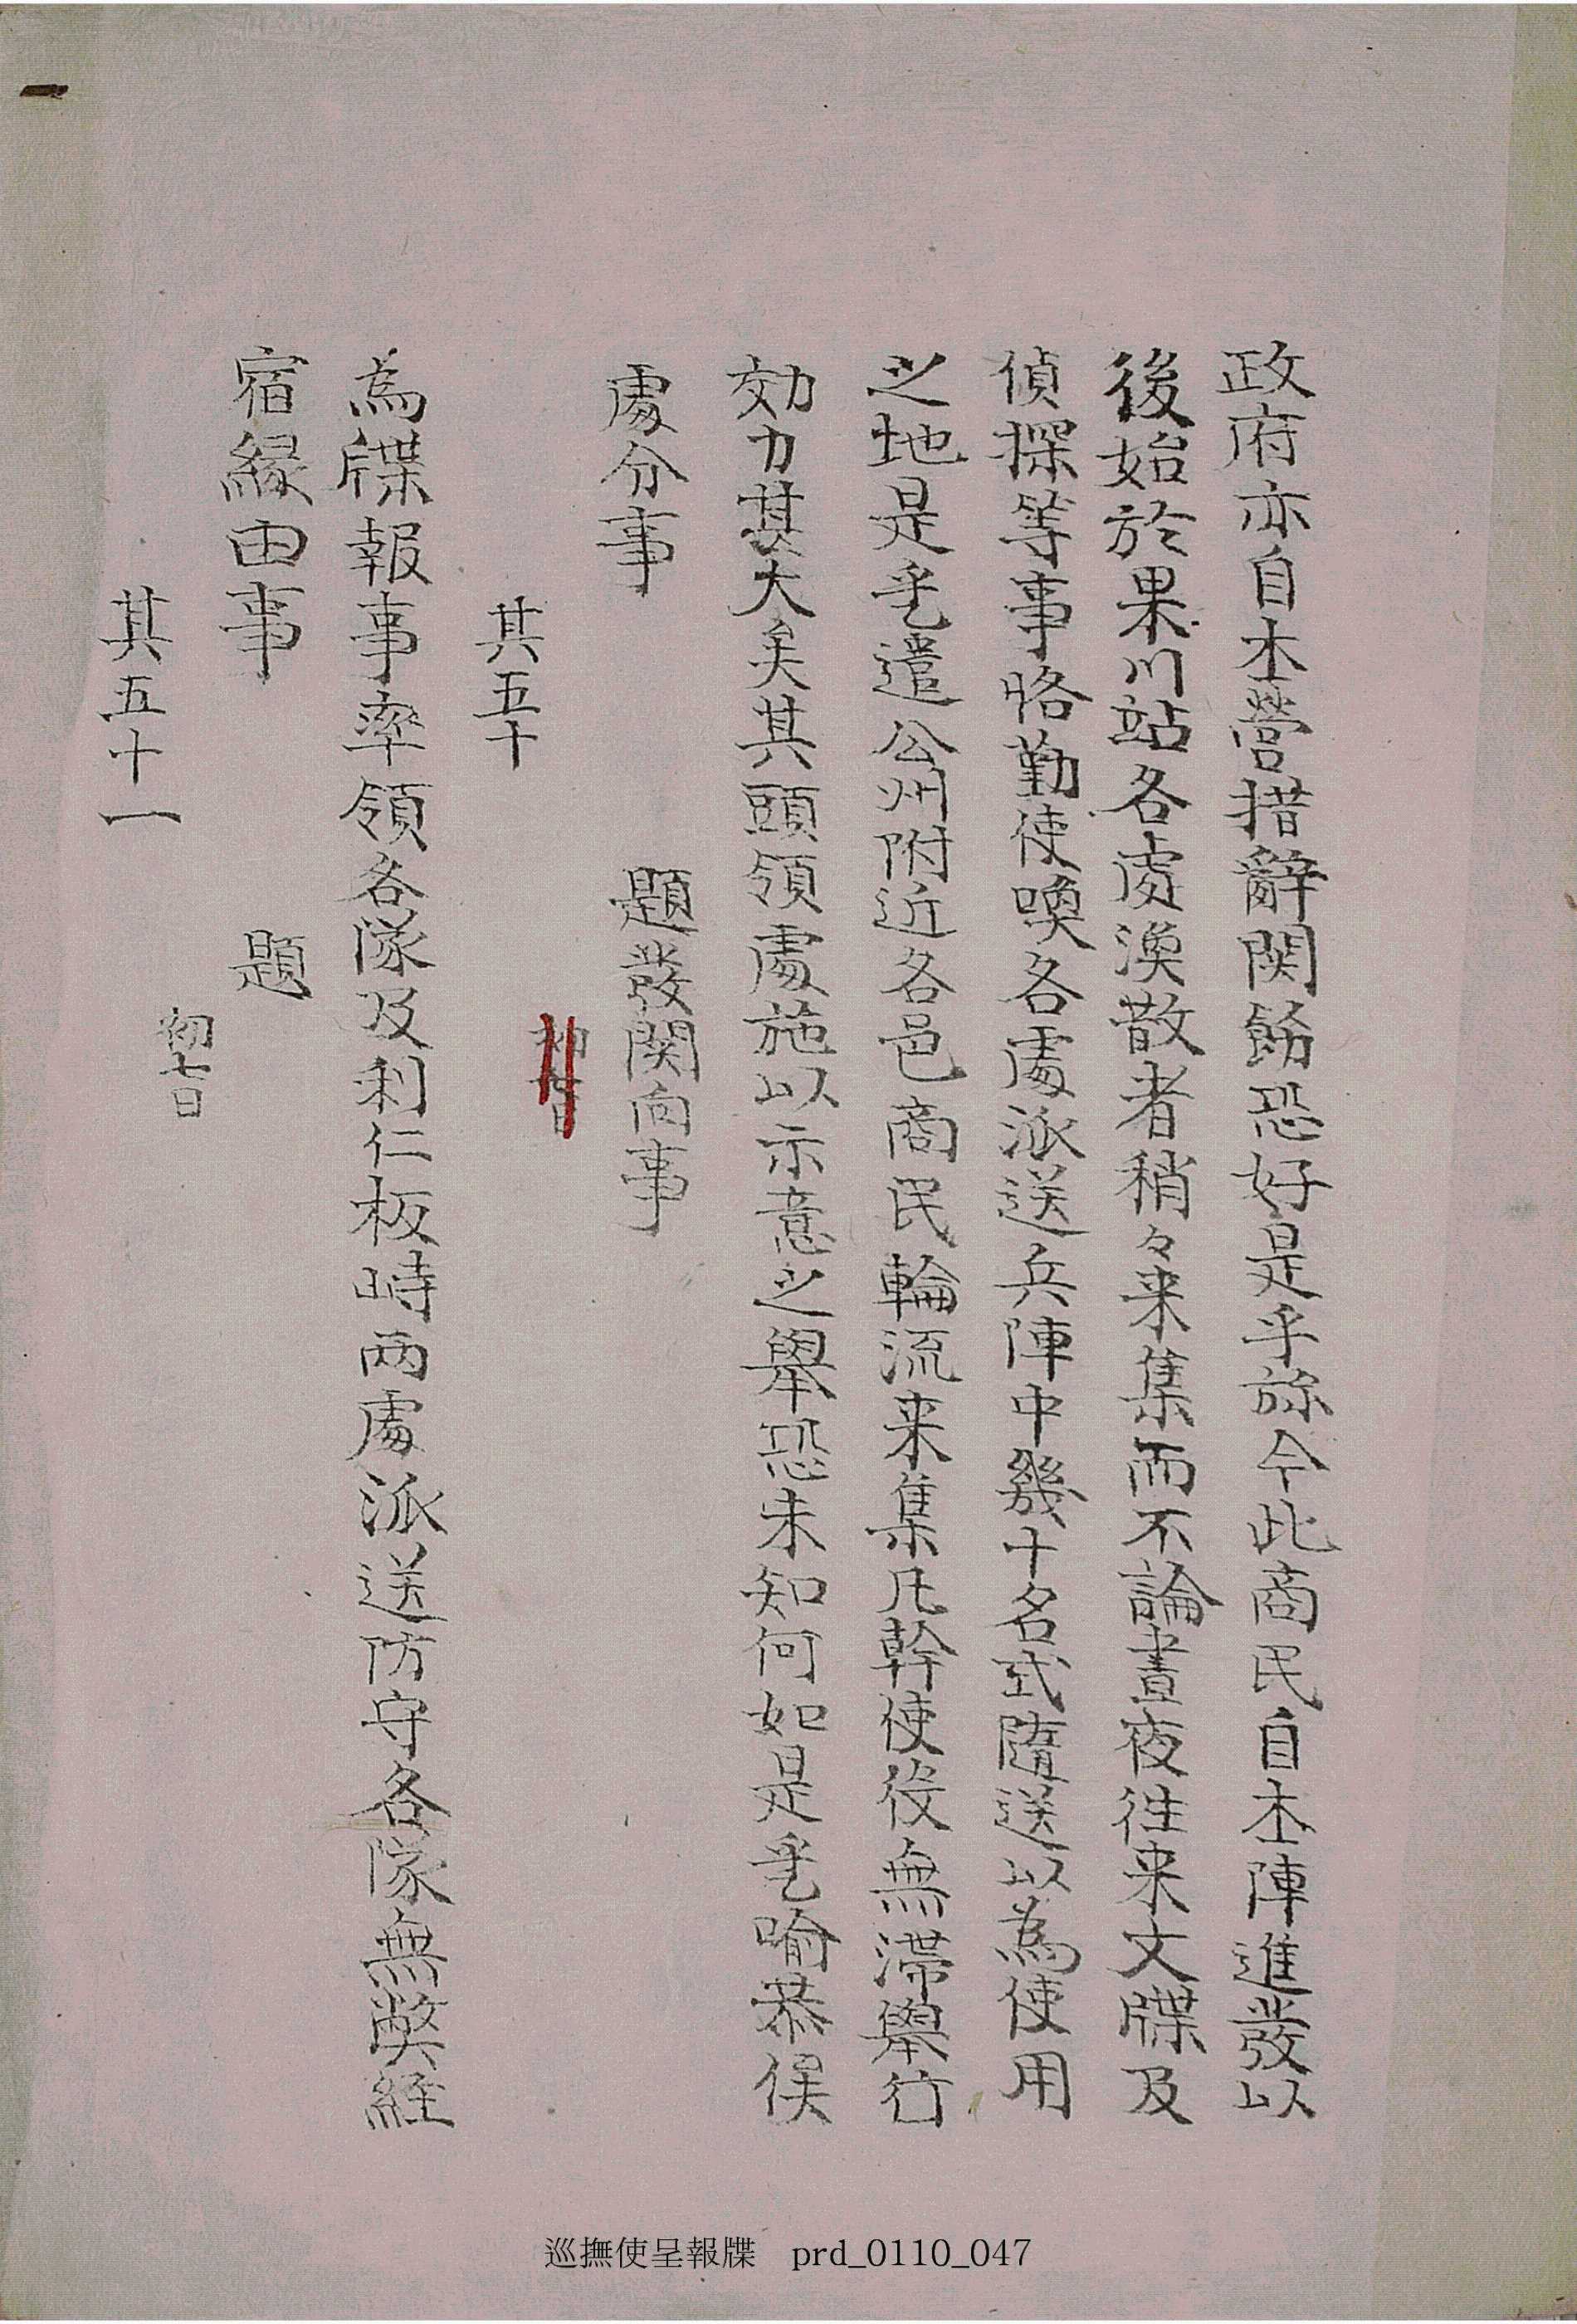 政府亦自本營措辭関飭恐好是乎旀今此商民自本陣進發以
後始於果川站各處渙散者稍々来集而不論晝夜往来文牒及
偵探等事恪勤使喚各處派送兵陣中幾十名式隨送以為使用
之地是乎遣公州附近各邑商民輪流来集凡幹使役無滯舉行
効力甚大矣其頭領處施以示意之舉恐未知何如是乎喻恭俟
處分事
題發関向事
其五十
初七日
為牒報事率領各隊及利仁板峙兩處派送防守各隊無獘經
宿縁由事
題
初七日
其五十一
巡撫使呈報牒 prd_0110_047